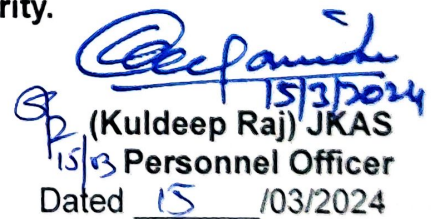 rity.
15/3/2024
(Kuldeep Raj) JKAS
15/03 Personnel Officer
Dated 15 /03/2024